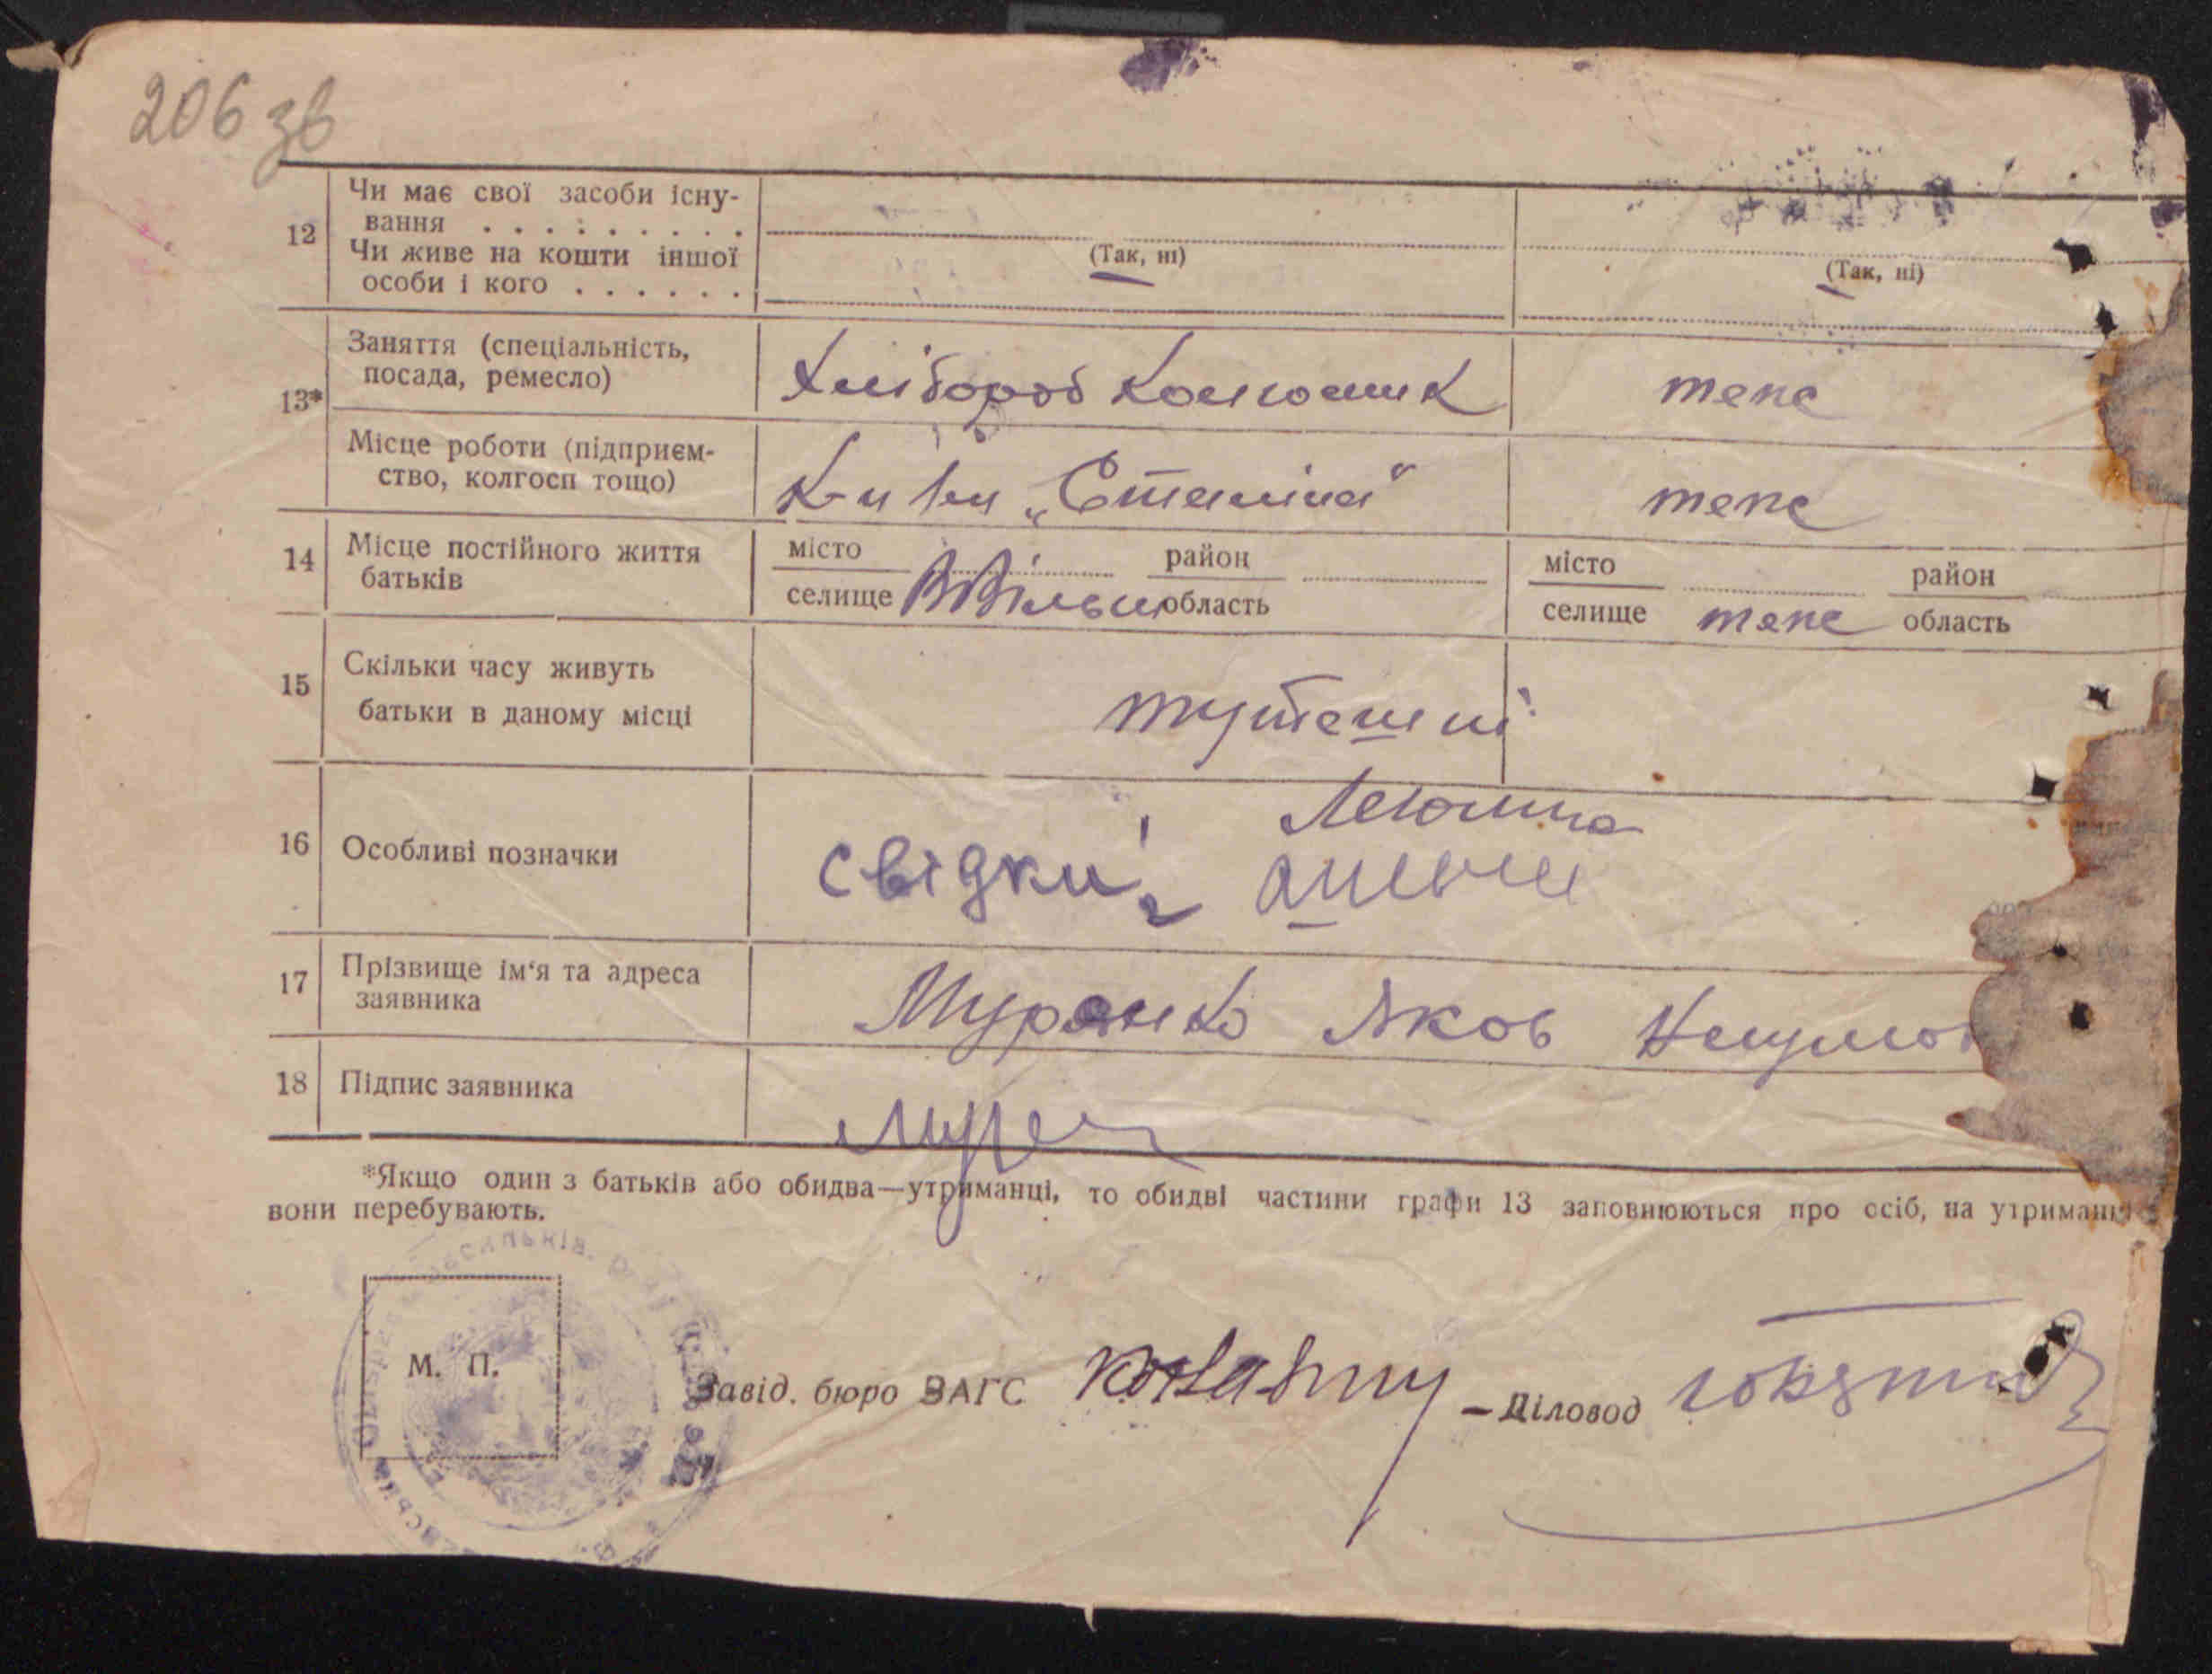 206 зв
12 Чи має свої засоби існу-
вання . . . . . . . . .
Чи живе на кошти іншої
особи і кого . . . . . .
(Так, ні) (Так, ні)
13* Заняття (спеціальність,
посада, ремесло)
Хлібороб колгосник теж
Місце роботи (підприєм-
ство, колгосп тощо)
К-п ім „Сталіна" теж
14 Місце постійного життя
батьків
місто район місто район
селище ВВільш область селище теж область
15 Скільки часу живуть
батьки в даному місці
тутешні
16 Особливі позначки
свідки
17 Прізвище ім'я та адреса
заявника
Муранко Яков
18 Підпис заявника
Мур
*Якщо один з батьків або обидва—утриманці, то обидві частини графи 13 заповнюються про осіб, на утриманні
вони перебувають.
М. П.
Завід. бюро ЗАГС
Діловод